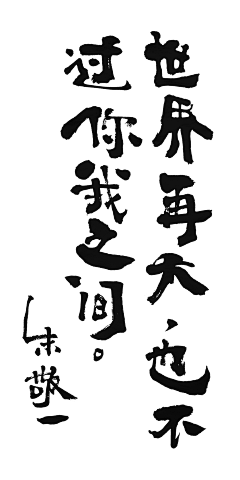 世界再大,也不
过你我之间。
朱敬一